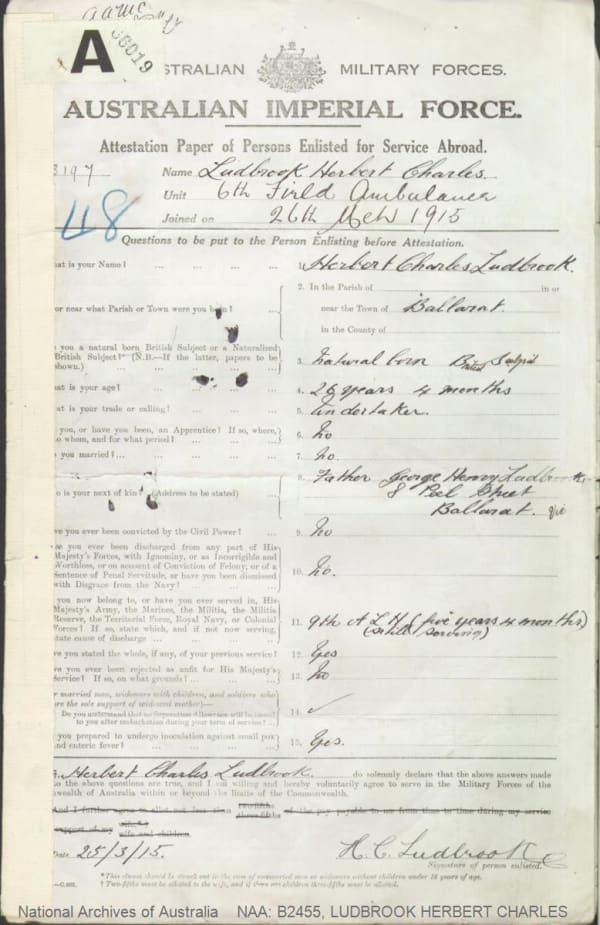 A
36019
STRALIAN MILITARY FORCES.
AUSTRALIAN IMPERIAL FORCE.
Attestation Paper of Persons Enlisted for Service Abroad.
3197
Name Ludbrook Herbert Charles
48
Unit 6th Field Ambulance
Joined on 26th Mch 1915
Questions to be put to the Person Enlisting before Attestation.
at is your Name? ... ... ... ... 1. Herbert Charles Ludbrook.
2. In the Parish of in or
or near what Parish or Town were you born? ... near the Town of Ballarat.
in the County of
you a natural born British Subject or a Naturalized
British Subject?† (N.B.—If the latter, papers to be
shown.) 3. Natural born British Subject
at is your age? ... ... ... ... 4. 26 years 4 months
at is your trade or calling? ... ... ... 5. Undertaker.
you, or have you been, an Apprentice? If so, where,
o whom, and for what period? ... ... ... 6. No
you married?... ... ... ... 7. No.
8. Father George Henry Ludbrook
o is your next of kin? (Address to be stated) ... 8 Peel Street
Ballarat. Vic
ve you ever been convicted by the Civil Power? ... 9. No
ve you ever been discharged from any part of His
Majesty's Forces, with Ignominy, or as Incorrigible and
Worthless, or on account of Conviction of Felony, or of a
Sentence of Penal Servitude, or have you been dismissed
with Disgrace from the Navy? ... ... 10. No.
you now belong to, or have you ever served in, His
Majesty's Army, the Marines, the Militia, the Militia
Reserve, the Territorial Force, Royal Navy, or Colonial
Forces? If so, state which, and if not now serving,
state cause of discharge ... ... ... 11. 9th A L H (five years 4 months)
(still serving)
ve you stated the whole, if any, of your previous service? 12. Yes
ve you ever been rejected as unfit for His Majesty's
Service? If so, on what grounds? ... ... 13. No
r married men, widowers with children, and soldiers who
are the sole support of widowed mother)—
Do you understand that no Separation Allowance will be issued
to you after embarkation during your term of service? ... 14. ✓
you prepared to undergo inoculation against small pox
and enteric fever? ... ... ... 15. Yes.
I, Herbert Charles Ludbrook do solemnly declare that the above answers made
to the above questions are true, and I am willing and hereby voluntarily agree to serve in the Military Forces of the
wealth of Australia within or beyond the limits of the Commonwealth.
And I further agree to allot not less than two-fifths three-fifths of the pay payable to me from time to time during my service
support of my wife wife and children
Date 25/3/15. H. C. Ludbrook
Signature of person enlisted.
* This clause should be struck out in the case of unmarried men or widowers without children under 18 years of age.
† Two-fifths must be allotted to the wife, and if there are children three-fifths must be allotted.
National Archives of Australia NAA: B2455, LUDBROOK HERBERT CHARLES